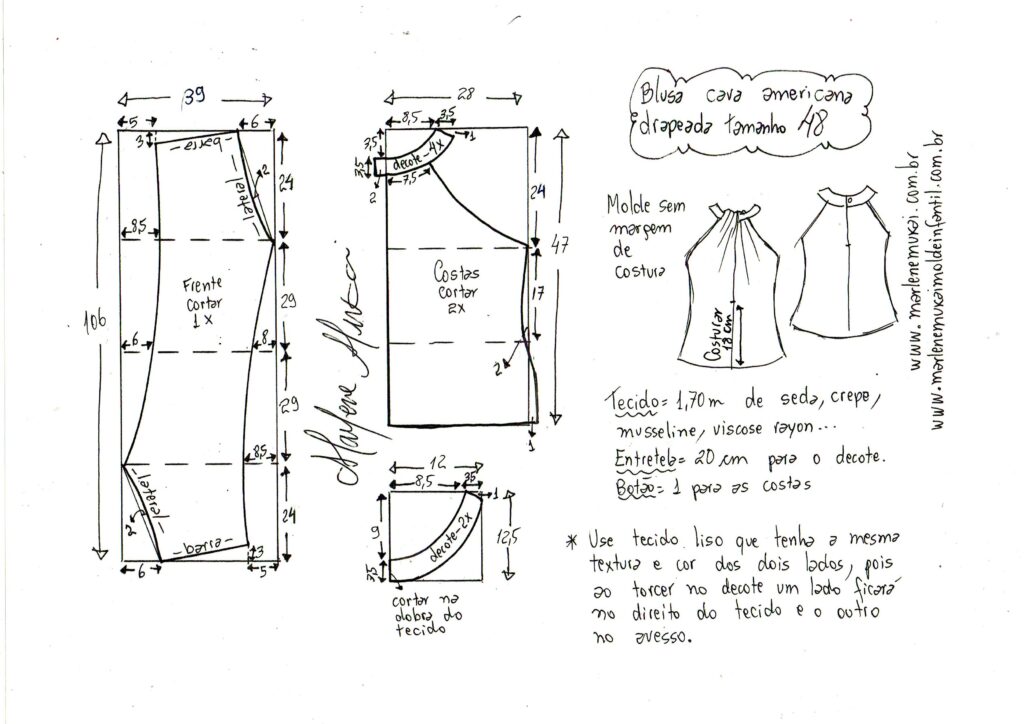 Blusa cava americana
drapeada tamanho 48
39
5
6
3
barra
lateral
2
24
8,5
Frente
cortar
1x
29
106
6
8
29
8,5
lateral
2
24
barra
3
6
5
Marlene Mukai
28
8,5
3,5
1
3,5
decote-4x
3,5
7,5
2
24
47
Costas
cortar
2x
17
2
1
12
8,5
3,5
1
9
decote-2x
12,5
3,5
cortar na
dobra do
tecido
Molde sem
margem
de
costura
Costurar
18 cm
www.marlenemukai.com.br
www.marlenemukaimoldeinfantil.com.br
Tecido= 1,70m de seda, crepe,
musseline, viscose rayon...
Entretela= 20 cm para o decote.
Botão= 1 para as costas
* Use tecido liso que tenha a mesma
textura e cor dos dois lados, pois
ao torcer no decote um lado ficará
no direito do tecido e o outro
no avesso.